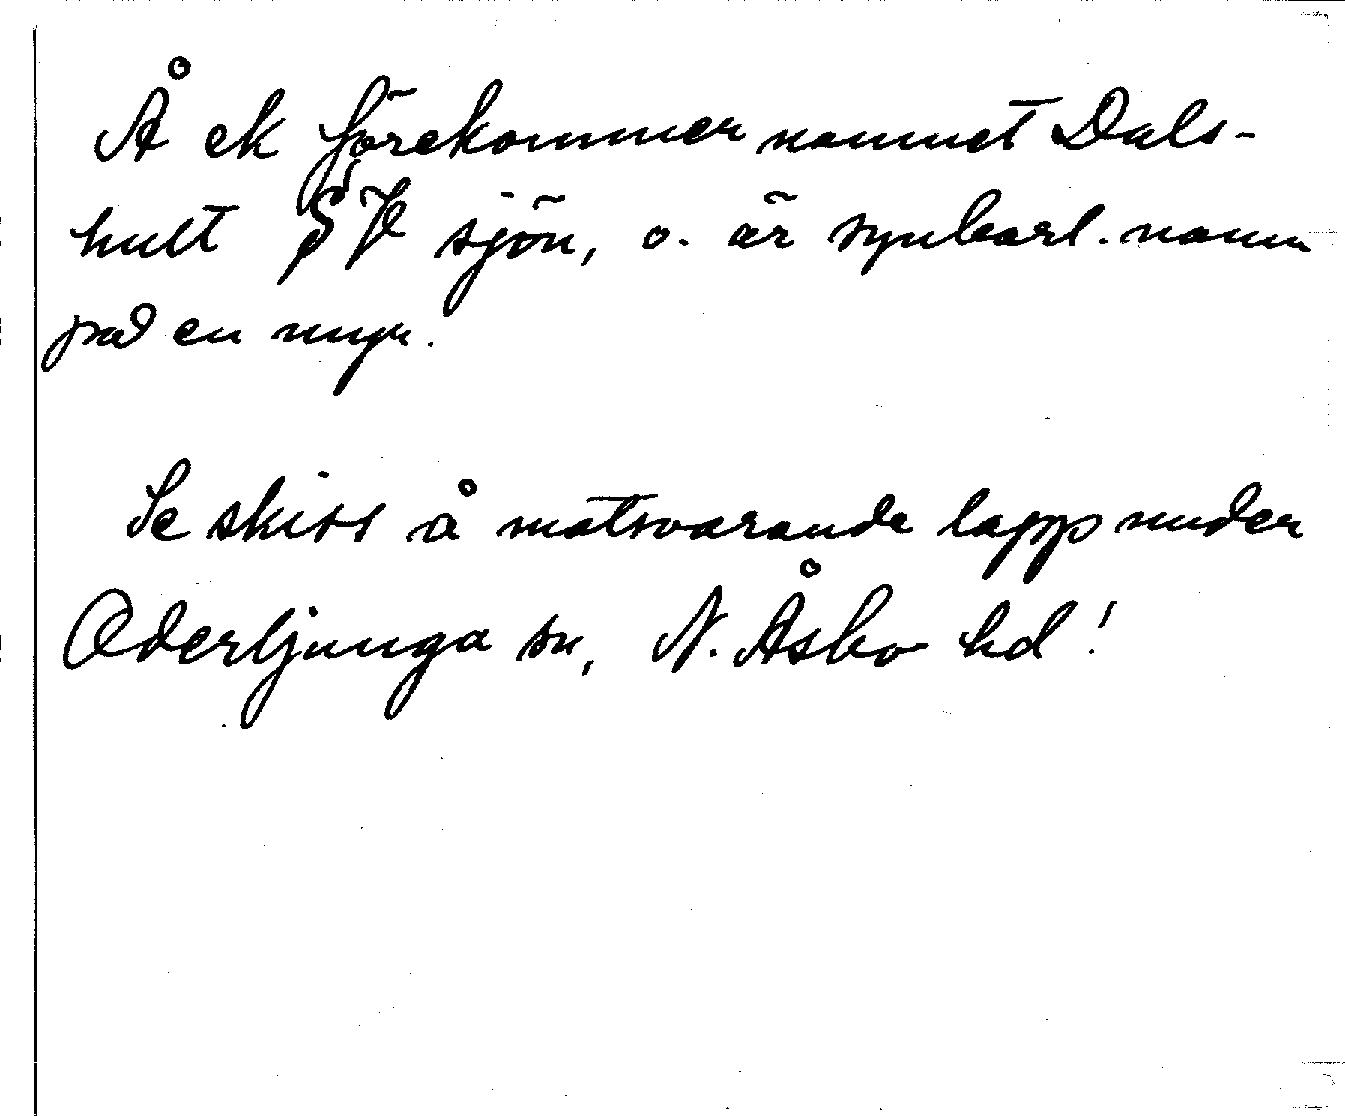 Å ek förekommer namnet Duls-
hult SV sjön, o. är synbarl. namn
på en myr.
Se skiss å motsvarande lapp under
Oderljunga sn, N. Åsbo hd!